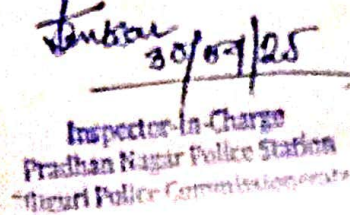 30/07/25
Inspector-in-Charge
Pradhan Nagar Police Station
Siliguri Police Commissionerate